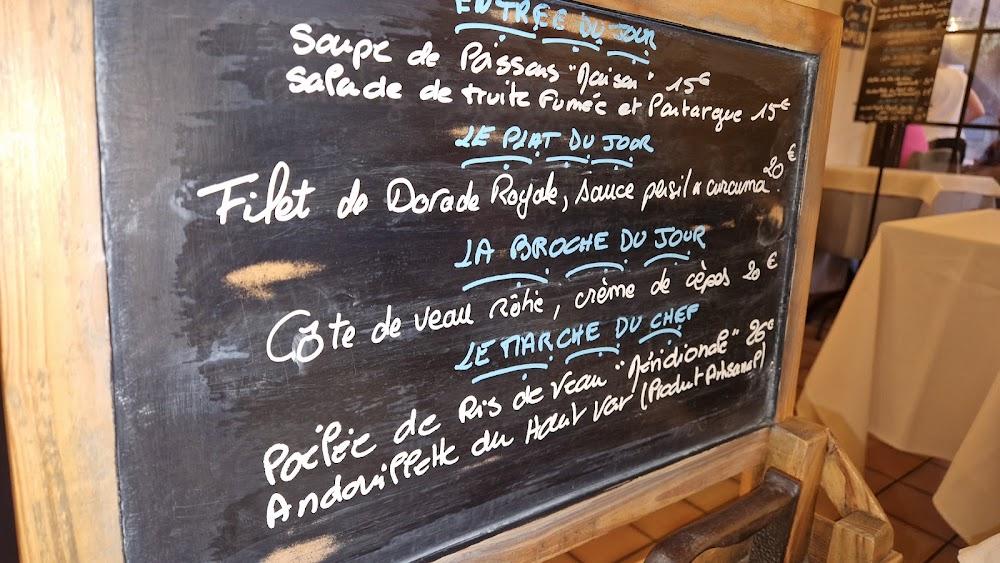 ENTRÉE DU JOUR
Soupe de Poissons "Maison" 15€
Salade de truite fumée et Poutargue 15€
LE PLAT DU JOUR
Filet de Dorade Royale, sauce persil & curcuma 20€
LA BROCHE DU JOUR
Côte de veau rôtie, crème de cèpes 20€
LE MARCHE DU CHEF
Poêlée de Ris de veau "Méridionale" 26€
Andouillette du Haut Var (Produit Artisanal)